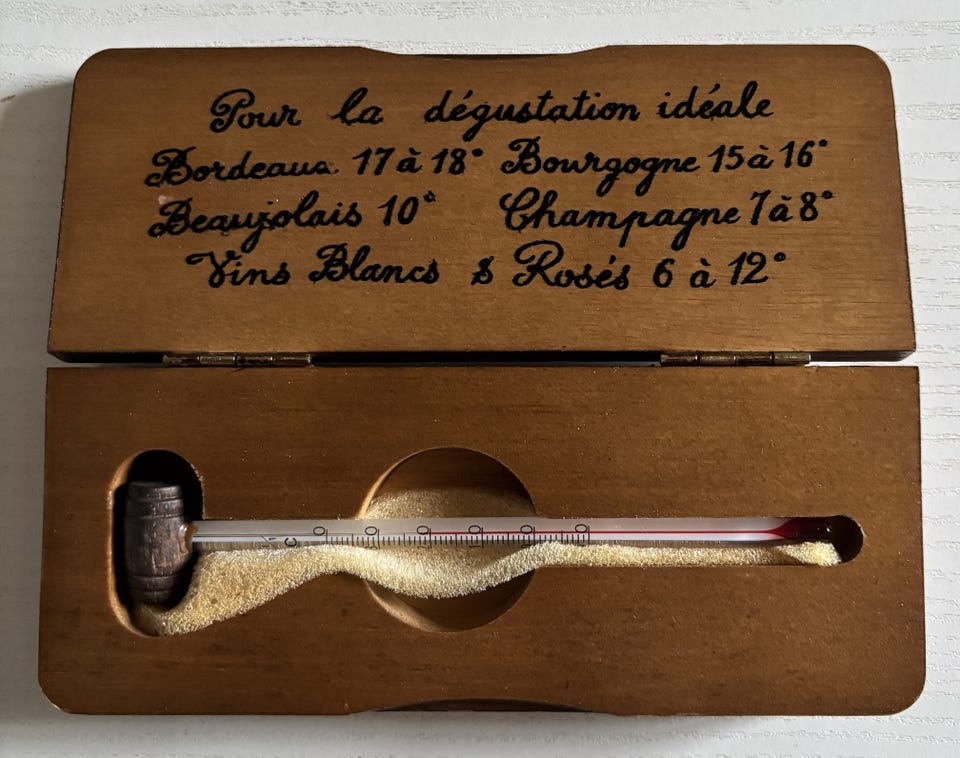 Pour la dégustation idéale
Bordeaux 17 à 18° Bourgogne 15 à 16°
Beaujolais 10° Champagne 7 à 8°
Vins Blancs & Rosés 6 à 12°
C